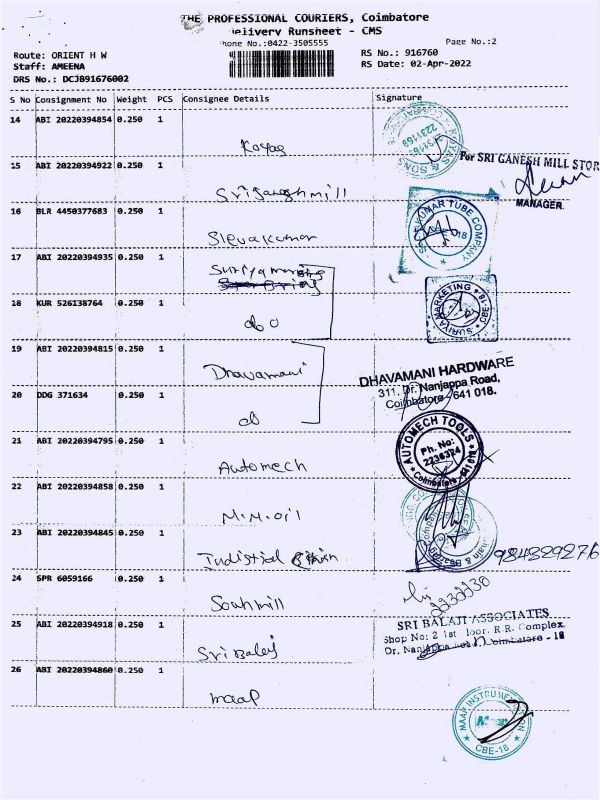 THE PROFESSIONAL COURIERS, Coimbatore
Delivery Runsheet - CMS
Phone No.:0422-3505555
Page No.:2
Route: ORIENT H W
RS No.: 916760
Staff: AMEENA
RS Date: 02-Apr-2022
DRS No.: DCJB91676002
S No Consignment No Weight PCS Consignee Details Signature
14 ABI 20220394854 0.250 1
& SONS
2231169
15 ABI 20220394922 0.250 1 Sriganeshmill
For SRI GANESH MILL STOR
MANAGER.
16 BLR 4450377683 0.250 1 Sievakumar
KUMAR TUBE COMPANY
18
17 ABI 20220394935 0.250 1 Suriyamarketing
SURIYA MARKETING CBE-18
18 KUR 526138764 0.250 1 do
19 ABI 20220394815 0.250 1 Dhavamani
DHAVAMANI HARDWARE
311, Dr. Nanjappa Road,
Coimbatore - 641 018.
20 DDG 371634 0.250 1 do
21 ABI 20220394795 0.250 1 Automech
AUTOMECH TOOLS
Ph. No:
2236374
Coimbatore - 641 018
22 ABI 20220394858 0.250 1 M.M.Oil
23 ABI 20220394845 0.250 1 Industial
24 SPR 6059166 0.250 1
2232230
25 ABI 20220394918 0.250 1 Sri Balaji
SRI BALAJI ASSOCIATES
Shop No: 2 1st Floor, R.R. Complex
Dr. Nanjappa Road, Coimbatore - 18
26 ABI 20220394860 0.250 1 maap
MAAP INSTRUMENTATION
Maap
CBE-18